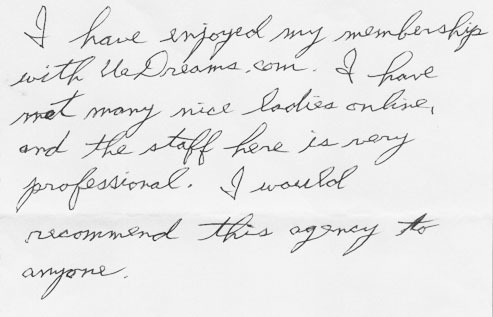 I have enjoyed my membership
with UaDreams.com. I have
met many nice ladies online,
and the staff here is very
professional. I would
recommend this agency to
anyone.